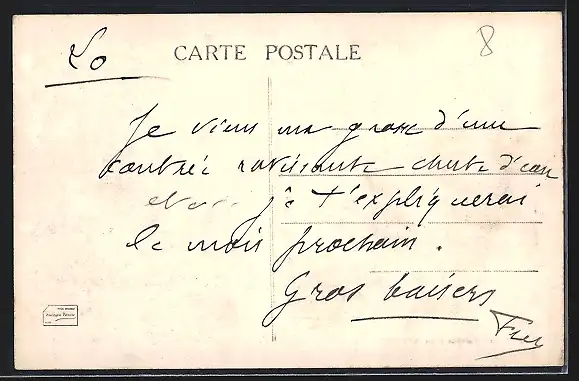 CARTE POSTALE
8
Lo
Je viens ma grosse d'une
contrée ravissante chute d'eau
je t'expliquerai
le mois prochain.
Gros baisers